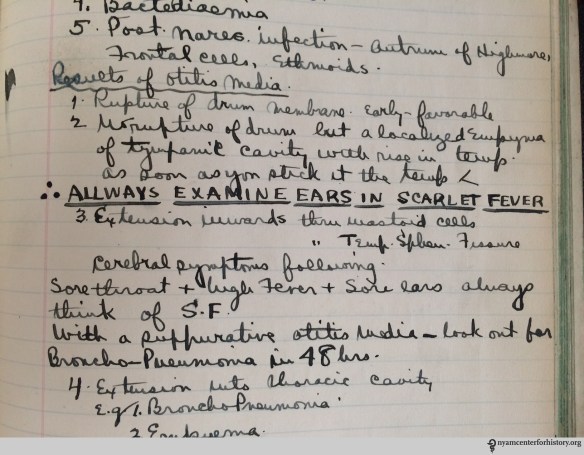 4. Bactediaemia
5. Post. nares. infection – antrum of Highmore,
Frontal cells, Ethmoids.
Results of otitis media.
1. Rupture of drum membrane. Early – favorable
2 No rupture of drum but a localized Empyma
of tympanic cavity with rise in temp.
as soon as you stick it the temp <
∴ ALLWAYS EXAMINE EARS IN SCARLET FEVER
3. Extension inwards thru mastoid cells
" Temp. Sphen. Fissure
Cerebral symptoms following.
Sore throat + High Fever + Sore ears always
think of S.F.
With a suppurative otitis media – look out for
Broncho-Pneumonia in 48 hrs.
4. Extension into thoracic cavity
E.g 1. Broncho Pneumonia.
2 Empyema.
nyamcenterforhistory.org